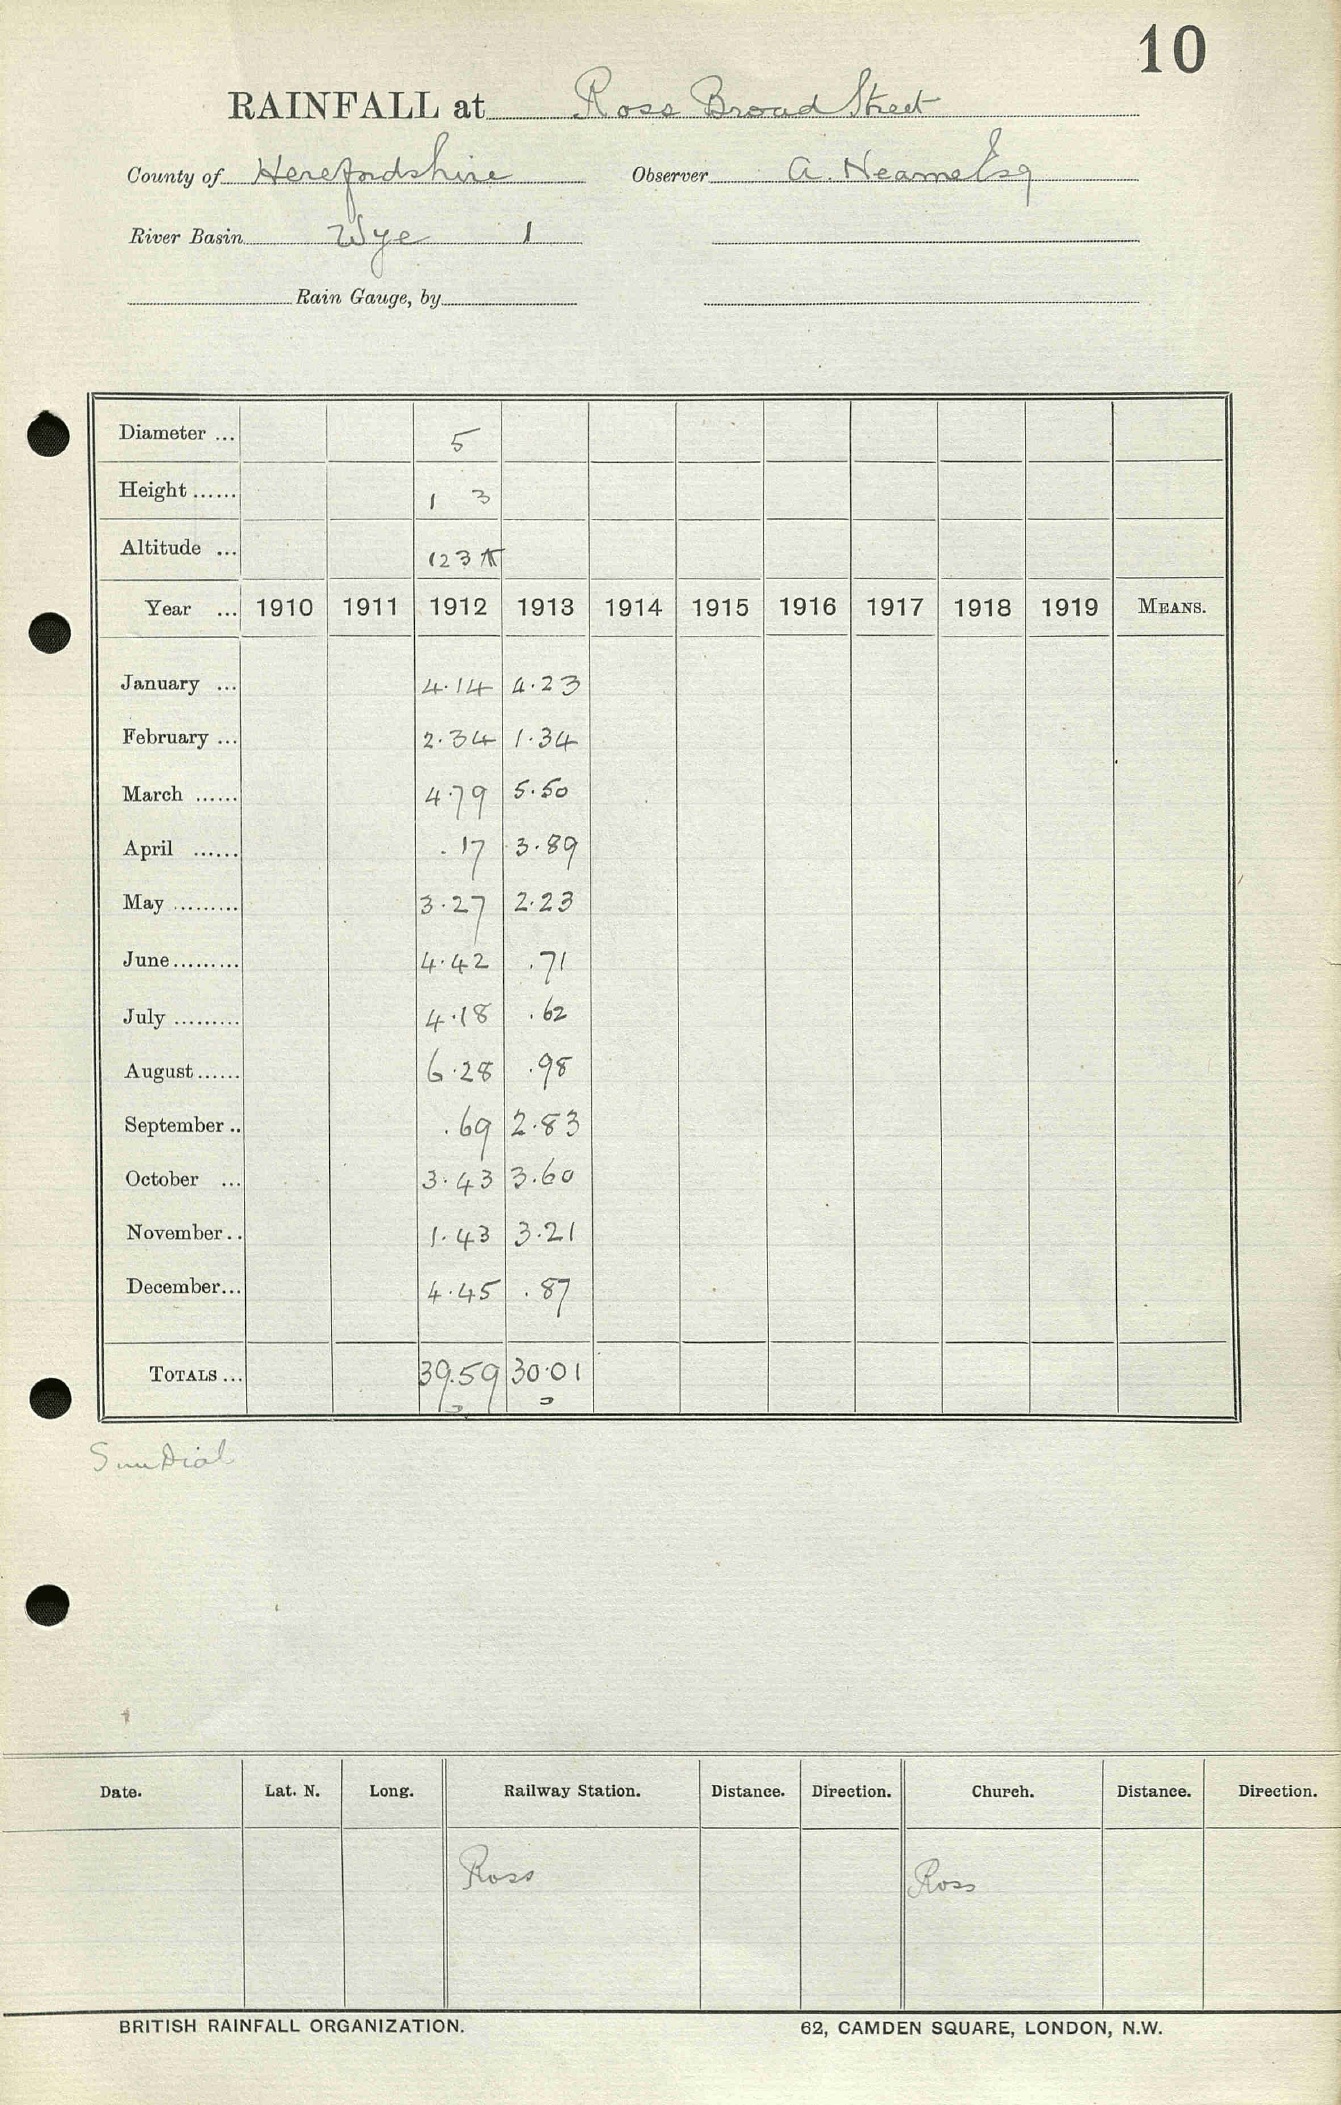 10
RAINFALL at Ross Broad Street
County of Herefordshire Observer A. Neame Esq
River Basin Wye 1
Rain Gauge, by
Diameter ... 5
Height ...... 1 3
Altitude ... 123
Year ... 1910 1911 1912 1913 1914 1915 1916 1917 1918 1919 MEANS.
January ... 4.14 4.23
February ... 2.34 1.34
March ...... 4.79 5.50
April ...... .17 3.89
May ......... 3.27 2.23
June ......... 4.42 .71
July ......... 4.18 .62
August ...... 6.28 .98
September .. .69 2.83
October ... 3.43 3.60
November .. 1.43 3.21
December ... 4.45 .87
TOTALS ... 39.59 30.01
Sun Dial
Date. Lat. N. Long. Railway Station. Distance. Direction. Church. Distance. Direction.
Ross Ross
BRITISH RAINFALL ORGANIZATION. 62, CAMDEN SQUARE, LONDON, N.W.